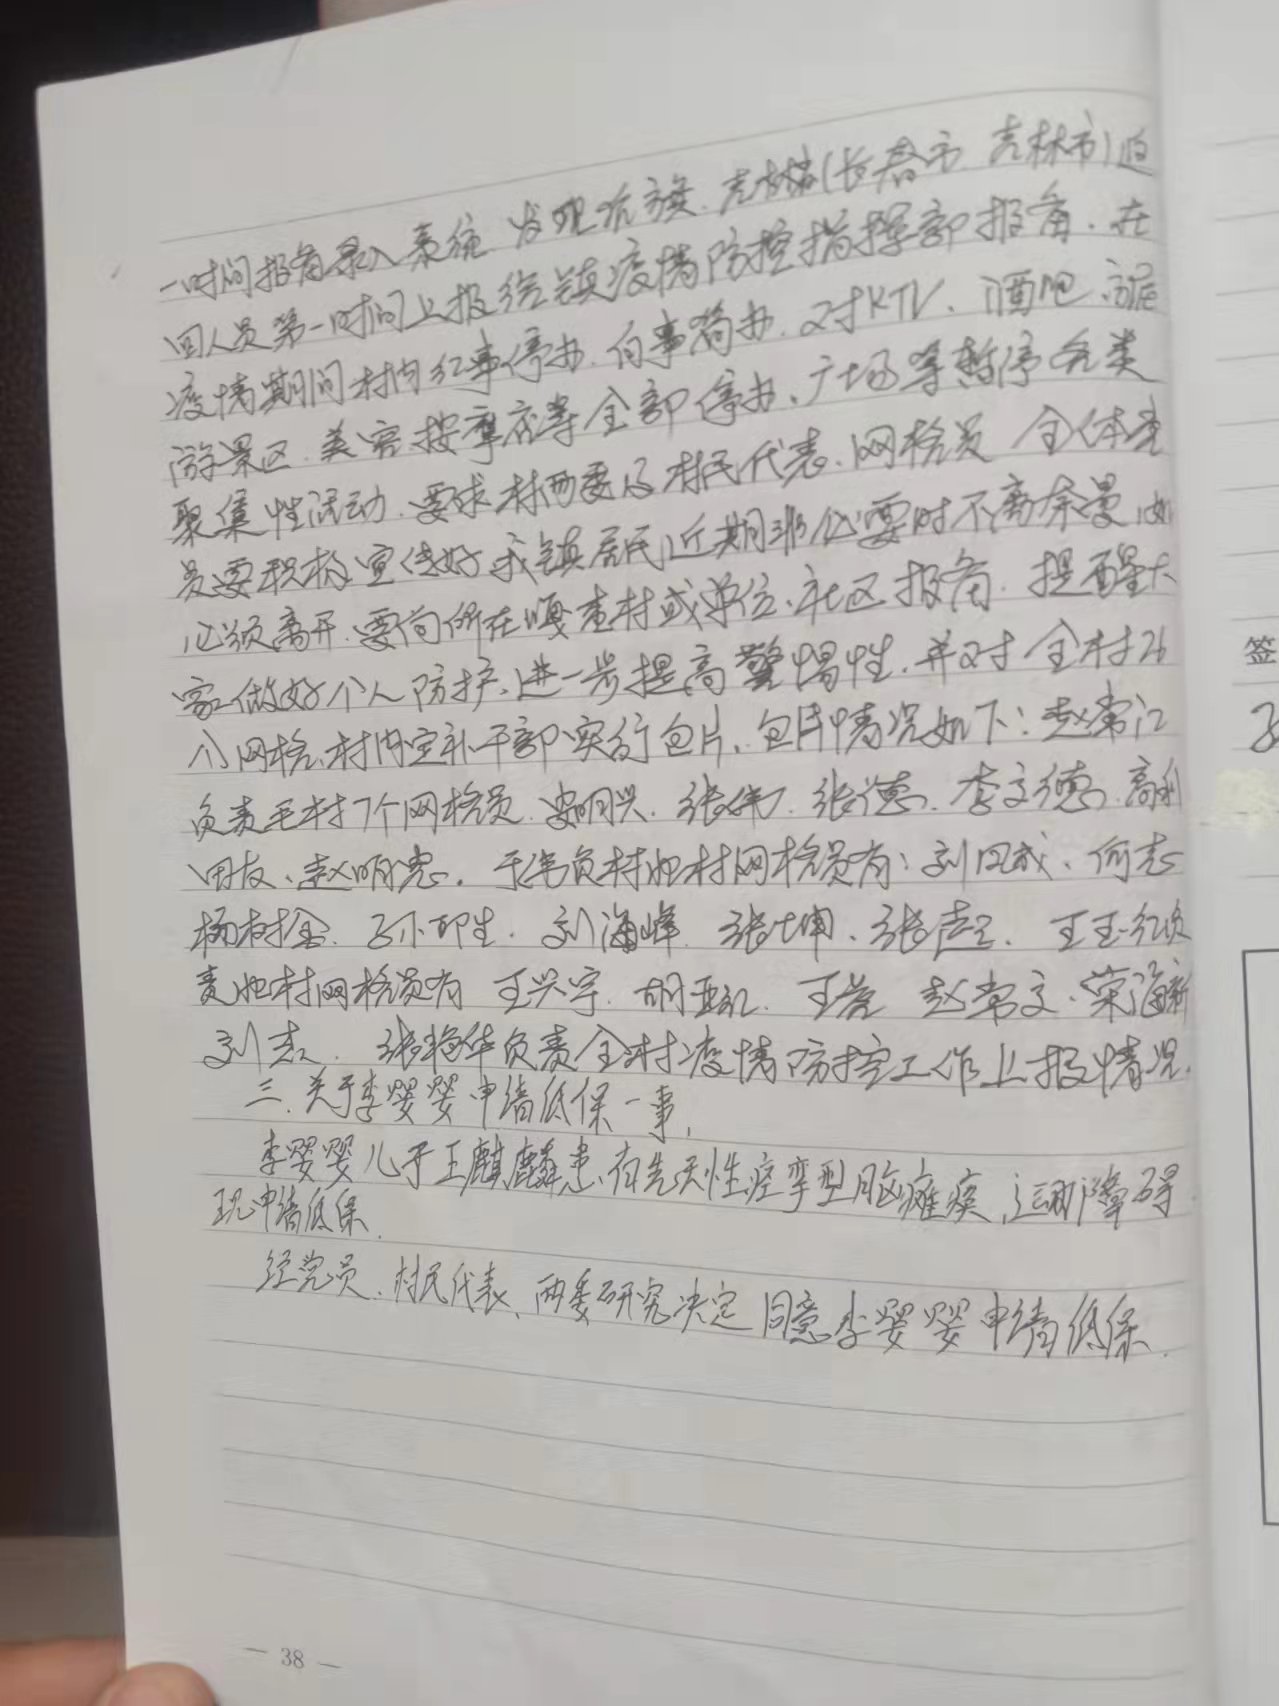 一时间报备录入系统 发现沈旗、吉林省(长春市、吉林市)返
回人员第一时间上报给镇疫情防控指挥部报备. 在
疫情期间村内红事停办、白事简办. 对KTV、酒吧、旅
游景区、美容按摩店等全部停办、广场等暂停各类
聚集性活动. 要求村两委及村民代表、网格员 全体党
员要积极宣传好我镇居民近期非必要时不离奈曼, 如
必须离开、要向所在嘎查村或单位、社区报备. 提醒大
家做好个人防护、进一步提高警惕性. 并对全村26
个网格、村内定补干部实行包片、包片情况如下: 赵常江
负责毛村7个网格员. 姜明兴. 张伟. 张德. 李文德. 高利
田友、赵明忠. 于伟负村她村网格员有: 刘凤武、何志
杨树金. 孙印生. 刘海峰. 张坤、张起. 王玉红负
责她村网格员有 王兴宇. 胡亚红. 王岩 赵常文. 荣海新
刘志. 张艳华负责全村疫情防控工作上报情况.
三. 关于李婴婴申请低保一事,
李婴婴儿子王麒麟患有先天性痉挛型脑瘫痪, 运动障碍
现申请低保.
经党员、村民代表、两委研究决定同意李婴婴申请低保.
— 38 —
签